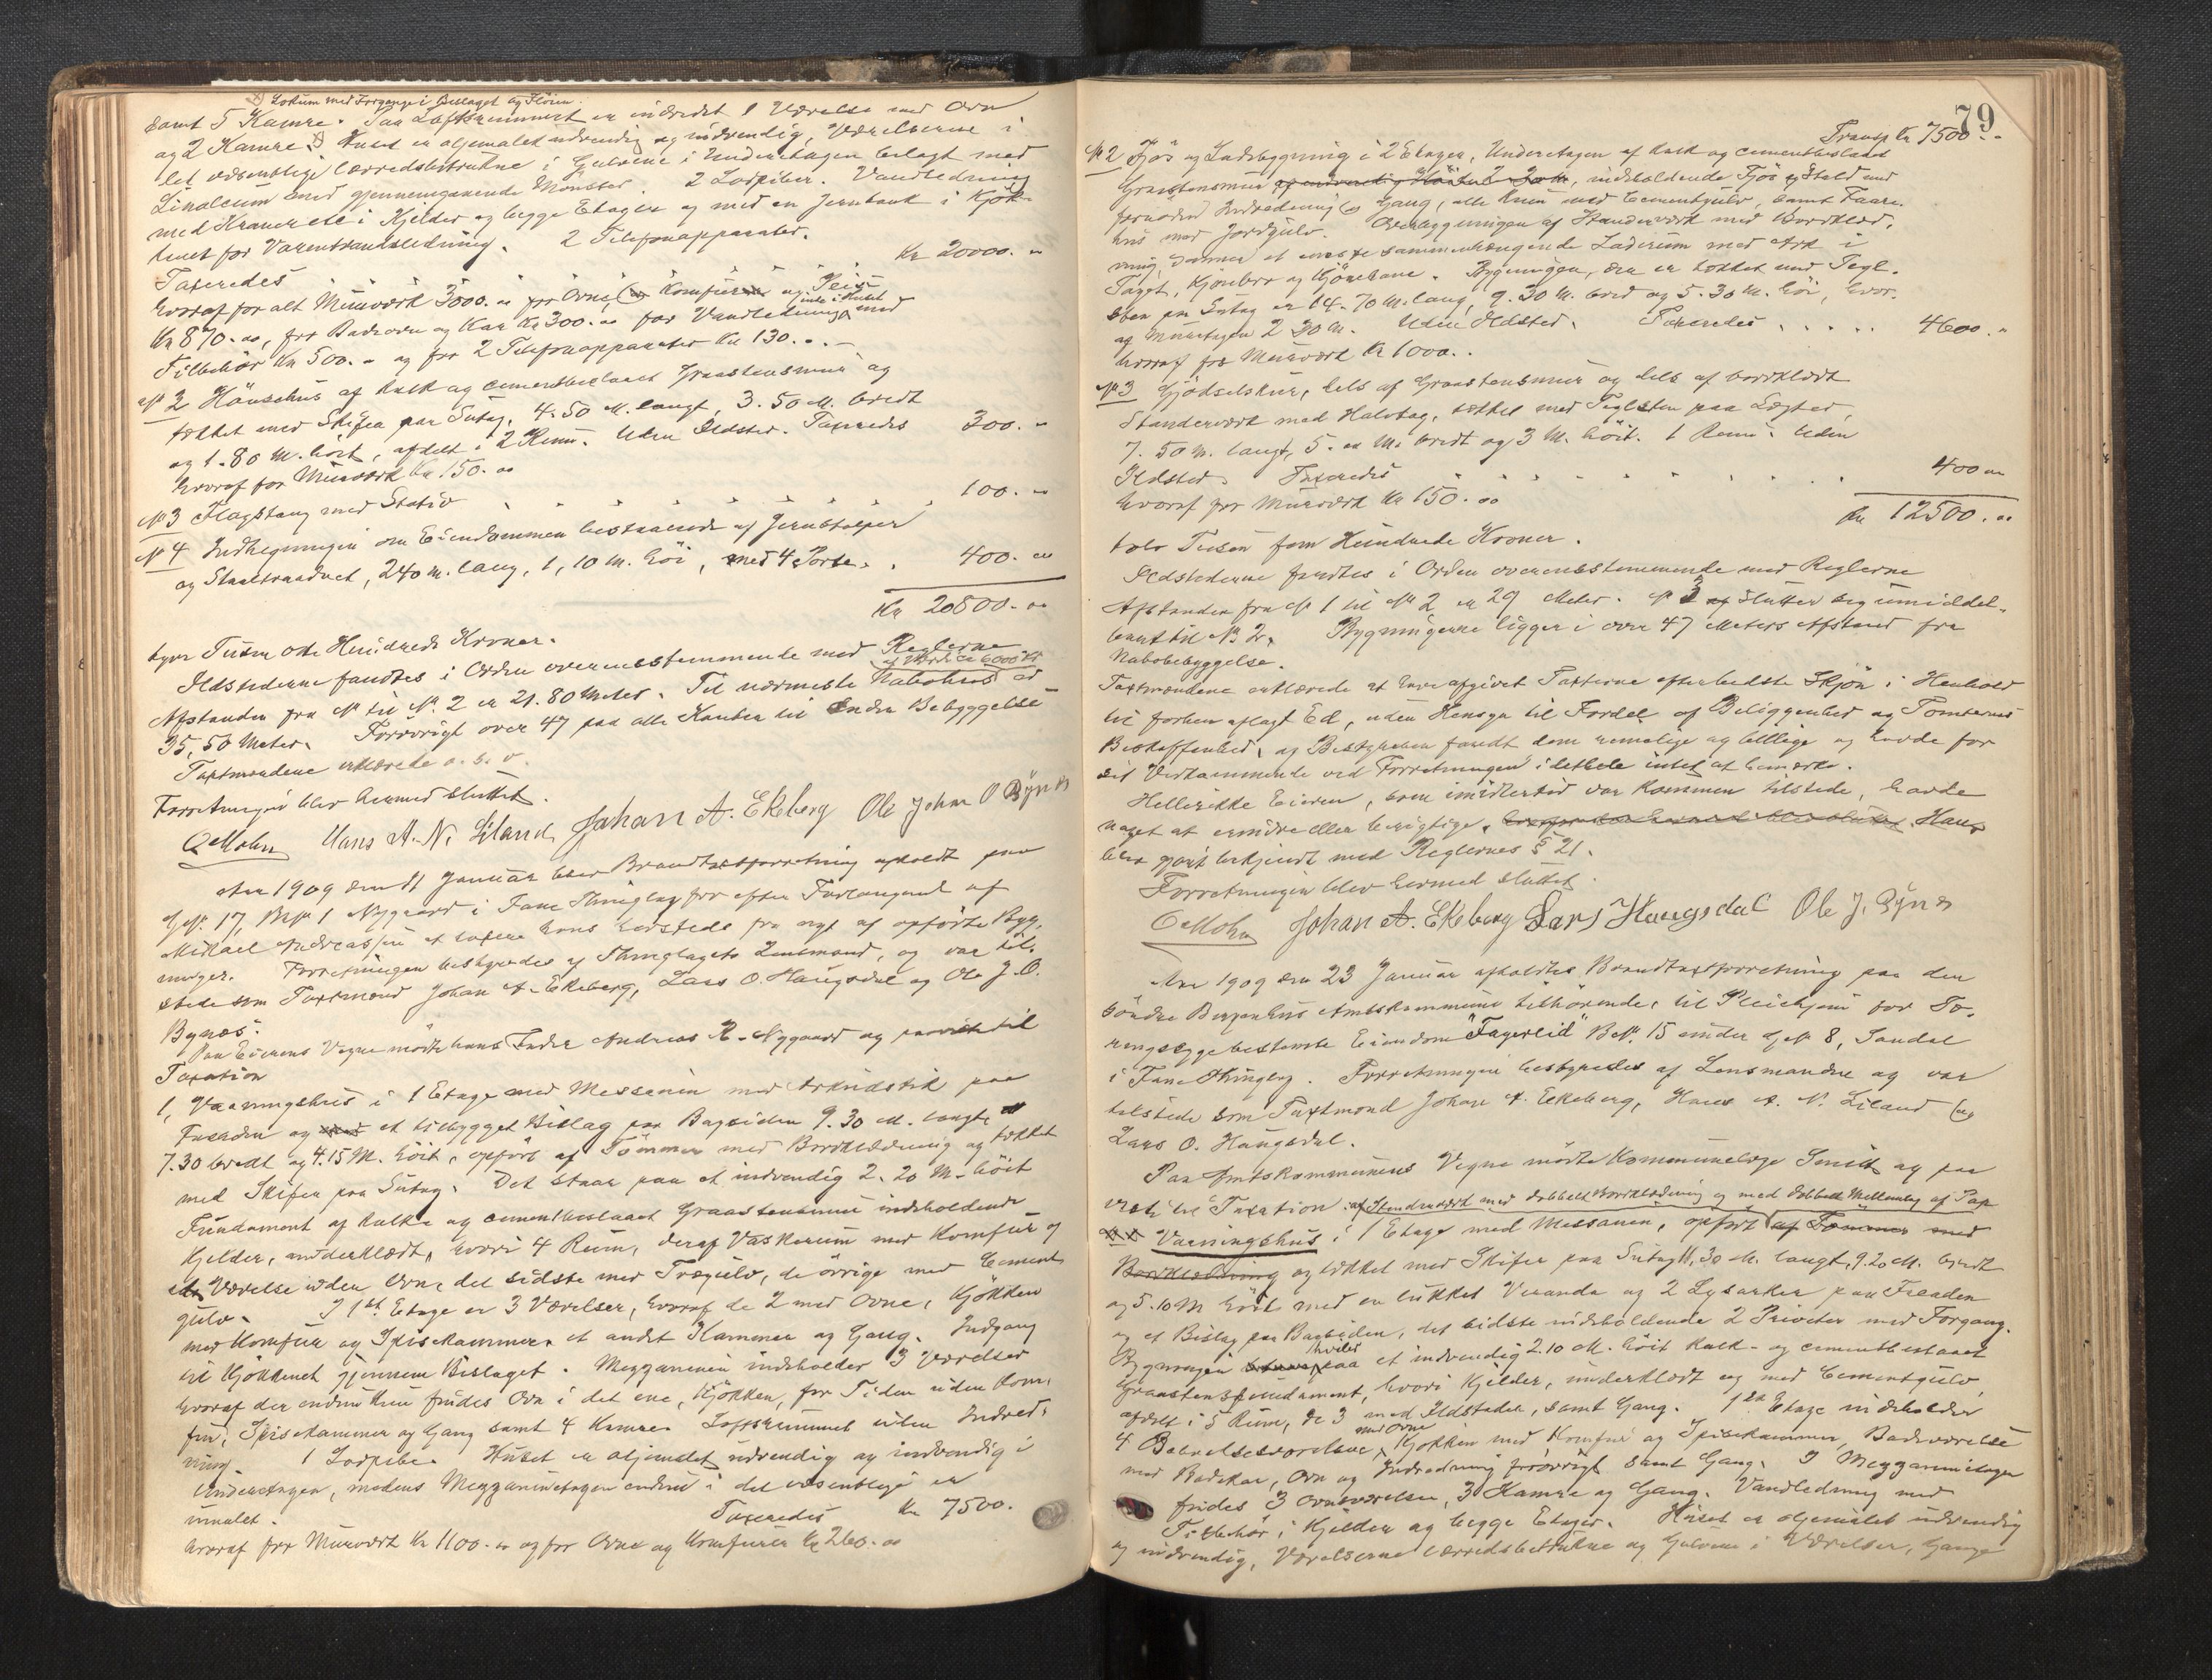 x) Lokum med Forgange i Bislaget og Fløien.
samt 5 Kamre. Paa Loftsrummet er indredet 1 Værelse med Ovn
og 2 Kamre. x) Huset er oljemalet udvendig og indvendig, Værelserne i
det væsentlige lærredsbetrukne i Gulvene i Underetagen belagt med
Linoleum med gjennemgaaende Mønster. 2 Lodpiber. Vandledning
med Kraner etc i Kjelder og begge Etager og med en Jernbank i Kjøk-
kenet for Varmtvandsledning. 2 Telefonapparater.
Taxeredes Kr 20000.-
hvoraf for alt Murværk 3000.00 for Ovne, Komfurer og Peis
Kr 870.00, for Badeovn og Kar Kr 300.00 for Vandledning inde i Huset med
Tilbehør Kr 500.- og for 2 Telefonapparater Kr 130.-
No 2 Hønsehus af kalk og cementbeslaaet Graastensmur og
tækket med Skifer paa Sutag, 4.50 M. langt, 3.50 M. bredt
og 1.80 M. høit, afdelt i 2 Rum. Uden Ildsted. Taxeredes 300.-
hvoraf for Murværk Kr 150.00
No 3 Flagstang med Stativ 100.-
No 4 Indhegningen om Eiendommen bestaaende af Jernstolper
og Staaltraadnet, 240 m. lang, 1,10 M. høi, med 4 Porte. 400.00
Kr 20800.00
tyve Tusen otte Hundrede Kroner.
Ildstederne fandtes i Orden overensstemmende med Reglerne
Afstanden fra No 1 til No 2 er 21.80 Meter. Til nærmeste Nabohus af Værdi ca 6000 Kr er
35,50 Meter. Forøvrigt over 47 paa alle Kanter til andre Bebyggelse
Taxtmændene erklærede o.s.v.
Forretningen blev hermed sluttet.
O Mohn Hans A. N. Liland Johan A. Ekeberg Ole Johan O Bynes
Aar 1909 den 11 Januar blev Brandtaxtforretning afholdt paa
G.No. 17, B.No 1 Nygaard i Fane Thinglag for efter Forlangende af
Mikael Andreassen at taxere hans hersteds fra nyt af opførte Byg-
ninger. Forretningen bestyredes af Thinglagets Lensmand, og var til-
stede som Taxtmænd Johan A. Ekeberg, Lars O. Haugsdal og Ole J. O.
Bynes.
Paa Eierens Vegne mødte hans Fader Andreas R. Nygaard og paaviste til
Taxation
1, Vaaningshus i 1 Etage med Messanin med Arkudstik paa
Facaden og et tilbygget Bislag paa Bagsiden 9.30 M. langt
7.30 bredt og 4.15 M. høit, opført af Tømmer med Bordklædning og tækket
med Skifer paa Sutag. Det staar paa et indvendig 2.20 M. høit
Fundament af kalk og cementbeslaaet Graastensmur indeholdende
Kjelder, underklædt, hvori 4 Rum, deraf Vaskerum med Komfur og
et Værelse uden Ovn, det sidste med Trægulv, de øvrige med Cement
gulv. I 1ste Etage er 3 Værelser, hvoraf de 2 med Ovne, Kjøkken
med Komfur og Spisekammer, et andet Kammer og Gang. Indgang
til Kjøkkenet gjennem Bislaget. Mezzaninen indeholder 3 Værelser
hvoraf der endnu kun findes Ovn i det ene, Kjøkken, for Tiden uden Kom-
fur, Spisekammer og Gang samt 4 Kamre. Loftsrummet uden Indred-
ning. 1 Lodpibe. Huset er oljemalet udvendig og indvendig i
Underetagen, medens Mezzaninetagen endnu i det væsentlige er
umalet. Taxeredes Kr 7500.
hvoraf for Murværk Kr 1100.- og for Ovne og Komfurer Kr 260.00
79
Transp. Kr 7500.-
No 2 Fjøs og Ladebygning i 2 Etager, Underetagen af kalk og cementbeslaaet
Graastensmur af indvendig Høide 2.30 M, indeholdende Fjøs og Stald med
fornøden Indredning og Gang, alle Rum med Cementgulv, samt Faare-
hus med Jordgulv. Overbygningen af Standerværk med Bordklæd-
ning, danner et eneste sammenhængende Laderum med Ark i
Taget, Kjørebro og Kjørebane. Bygningen, der er tækket med Tegl-
sten paa Sutag er 14.70 M. lang, 9.30 M. bred og 5.30 M. høi, hvor-
af Muretagen 2.30 M. Uden Ildsted. Taxeredes 4600.-
hvoraf for Murværk Kr 1000.-
No 3 Gjødselskur, dels af Graastensmur og dels af bordklædt
Standerværk med Halvtag, tækket med Teglsten paa Lægter,
7.50 M. langt, 5.00 M. bredt og 3 M. høit. 1 Rum. Uden
Ildsted. Taxeredes 400.00
hvoraf for Murværk Kr 150.00
Kr 12500.00
tolv Tusen fem Hundrede Kroner.
Ildstederne fandtes i Orden overensstemmende med Reglerne
Afstanden fra No 1 til No 2 er 29 Meter. No 3 slutter sig umiddel-
bart til No 2. Bygningerne ligger i over 47 Meters Afstand fra
Nabobebyggelse.
Taxtmændene erklærede at have afgivet Taxterne efter bedste Skjøn i Henhold
til forhen aflagt Ed, uden Hensyn til Fordel af Beliggenhed og Tomternes
Beskaffenhed, og Bestyreren fandt dem rimelige og billige og havde for
sit Vedkommende ved Forretningen i det hele intet at bemærke.
Heller ikke Eieren, som imidlertid var kommen tilstede, havde
noget at erindre eller berigtige. Han
blev gjort bekjendt med Reglernes § 21.
Forretningen blev hermed sluttet.
O Mohn Johan A. Ekeberg Lars Haugsdal Ole J. Bynes
Aar 1909 den 23 Januar afholdtes Brandtaxtforretning paa den
Søndre Bergenhus Amtskommune tilhørende, til Pleiehjem for Tæ-
ringssyge bestemte Eiendom "Fagerlid" B.No. 15 under G.No 8, Sandal
i Fane Thinglag. Forretningen bestyredes af Lensmanden og var
tilstede som Taxtmænd Johan A. Ekeberg, Hans A. N. Liland og
Lars O. Haugsdal.
Paa Amtskommunens Vegne mødte Kommunelæge Smith og paa
viste til Taxation af Standerværk med dobbelt Bordklædning og med dobbelt Mellemlag af Pap
Vaaningshus i 1 Etage med Messanin, opført af Tømmer med
Bordklædning og tækket med Skifer paa Sutag, 11.30 M. langt, 9.20 M. bredt
og 5.10 M høit med en lukket Veranda og 2 Lysarker paa Facaden
og et Bislag paa Bagsiden, det sidste indeholdende 2 Priveter med Forgang.
Bygningen hviler paa et indvendig 2.10 M. høit kalk- og cementbeslaaet
Graastensfundament, hvori Kjelder, underklædt og med Cementgulv,
afdelt i 5 Rum, de 3 med Ildsteder, samt Gang. 1ste Etage indeholder
4 Beboelsesværelser med Ovne, Kjøkken med Komfur og Spisekammer, Badeværelse
med Badekar, Ovn og Indredning forøvrigt samt Gang. I Mezzaninetagen
findes 3 Ovnsværelser, 3 Kamre og Gang. Vandledning med
Tilbehør i Kjelder og begge Etager. Huset er oljemalet udvendig
og indvendig, Værelserne lærredsbetrukne og Gulvene i Værelser, Gange